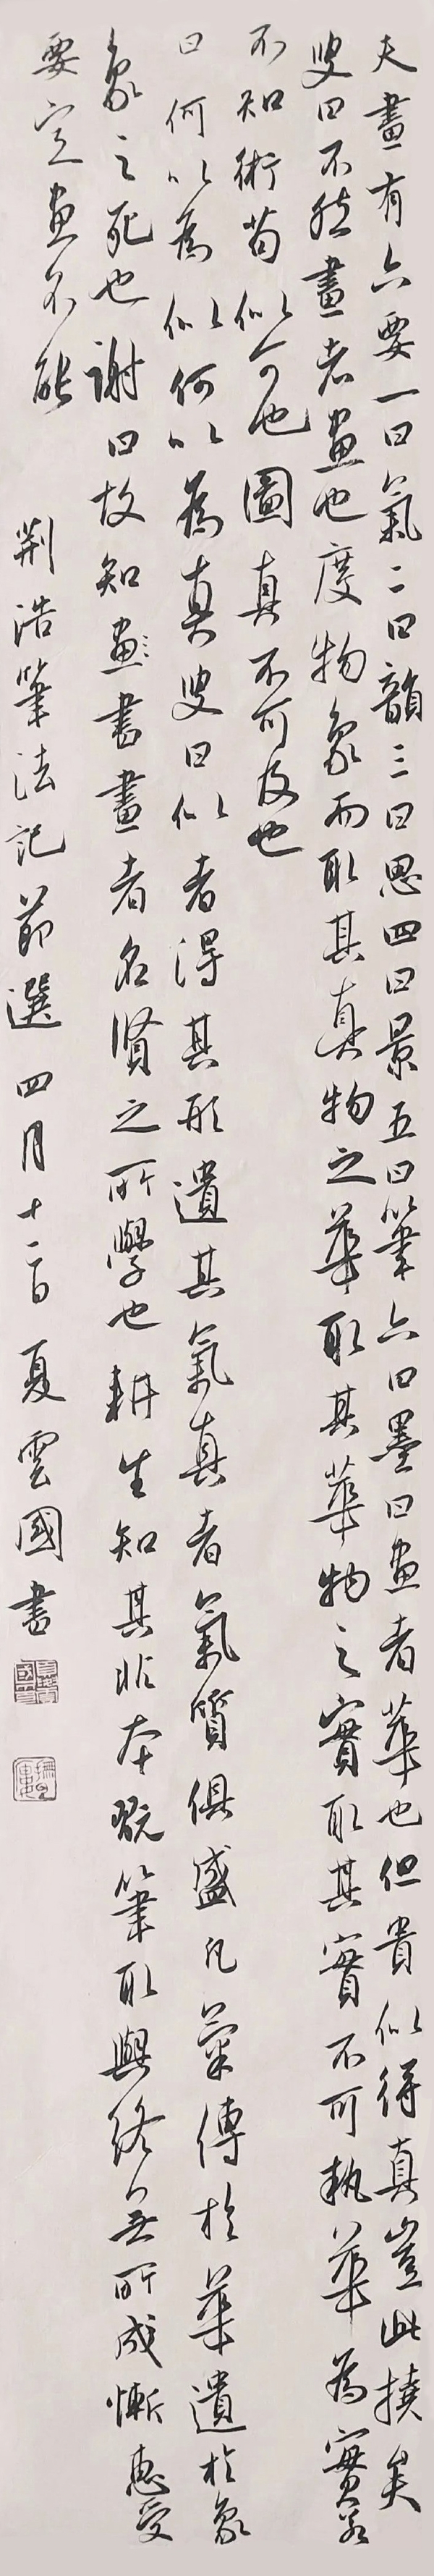 夫畫有六要一曰氣二曰韻三曰思四曰景五曰筆六曰墨曰畫者華也但貴似得真豈此撓矣
叟曰不然畫者畫也度物象而取其真物之華取其華物之實取其實不可執華為實若
不知術苟似可也圖真不可及也
曰何以為似何以為真叟曰似者得其形遺其氣真者氣質俱盛凡氣傳於華遺於象
象之死也謝曰故知畫書畫者名賢之所學也耕生知其非本翫筆取與終無所成慚惠受
要定畫不能
荆浩筆法記節選四月十二日夏雲國書